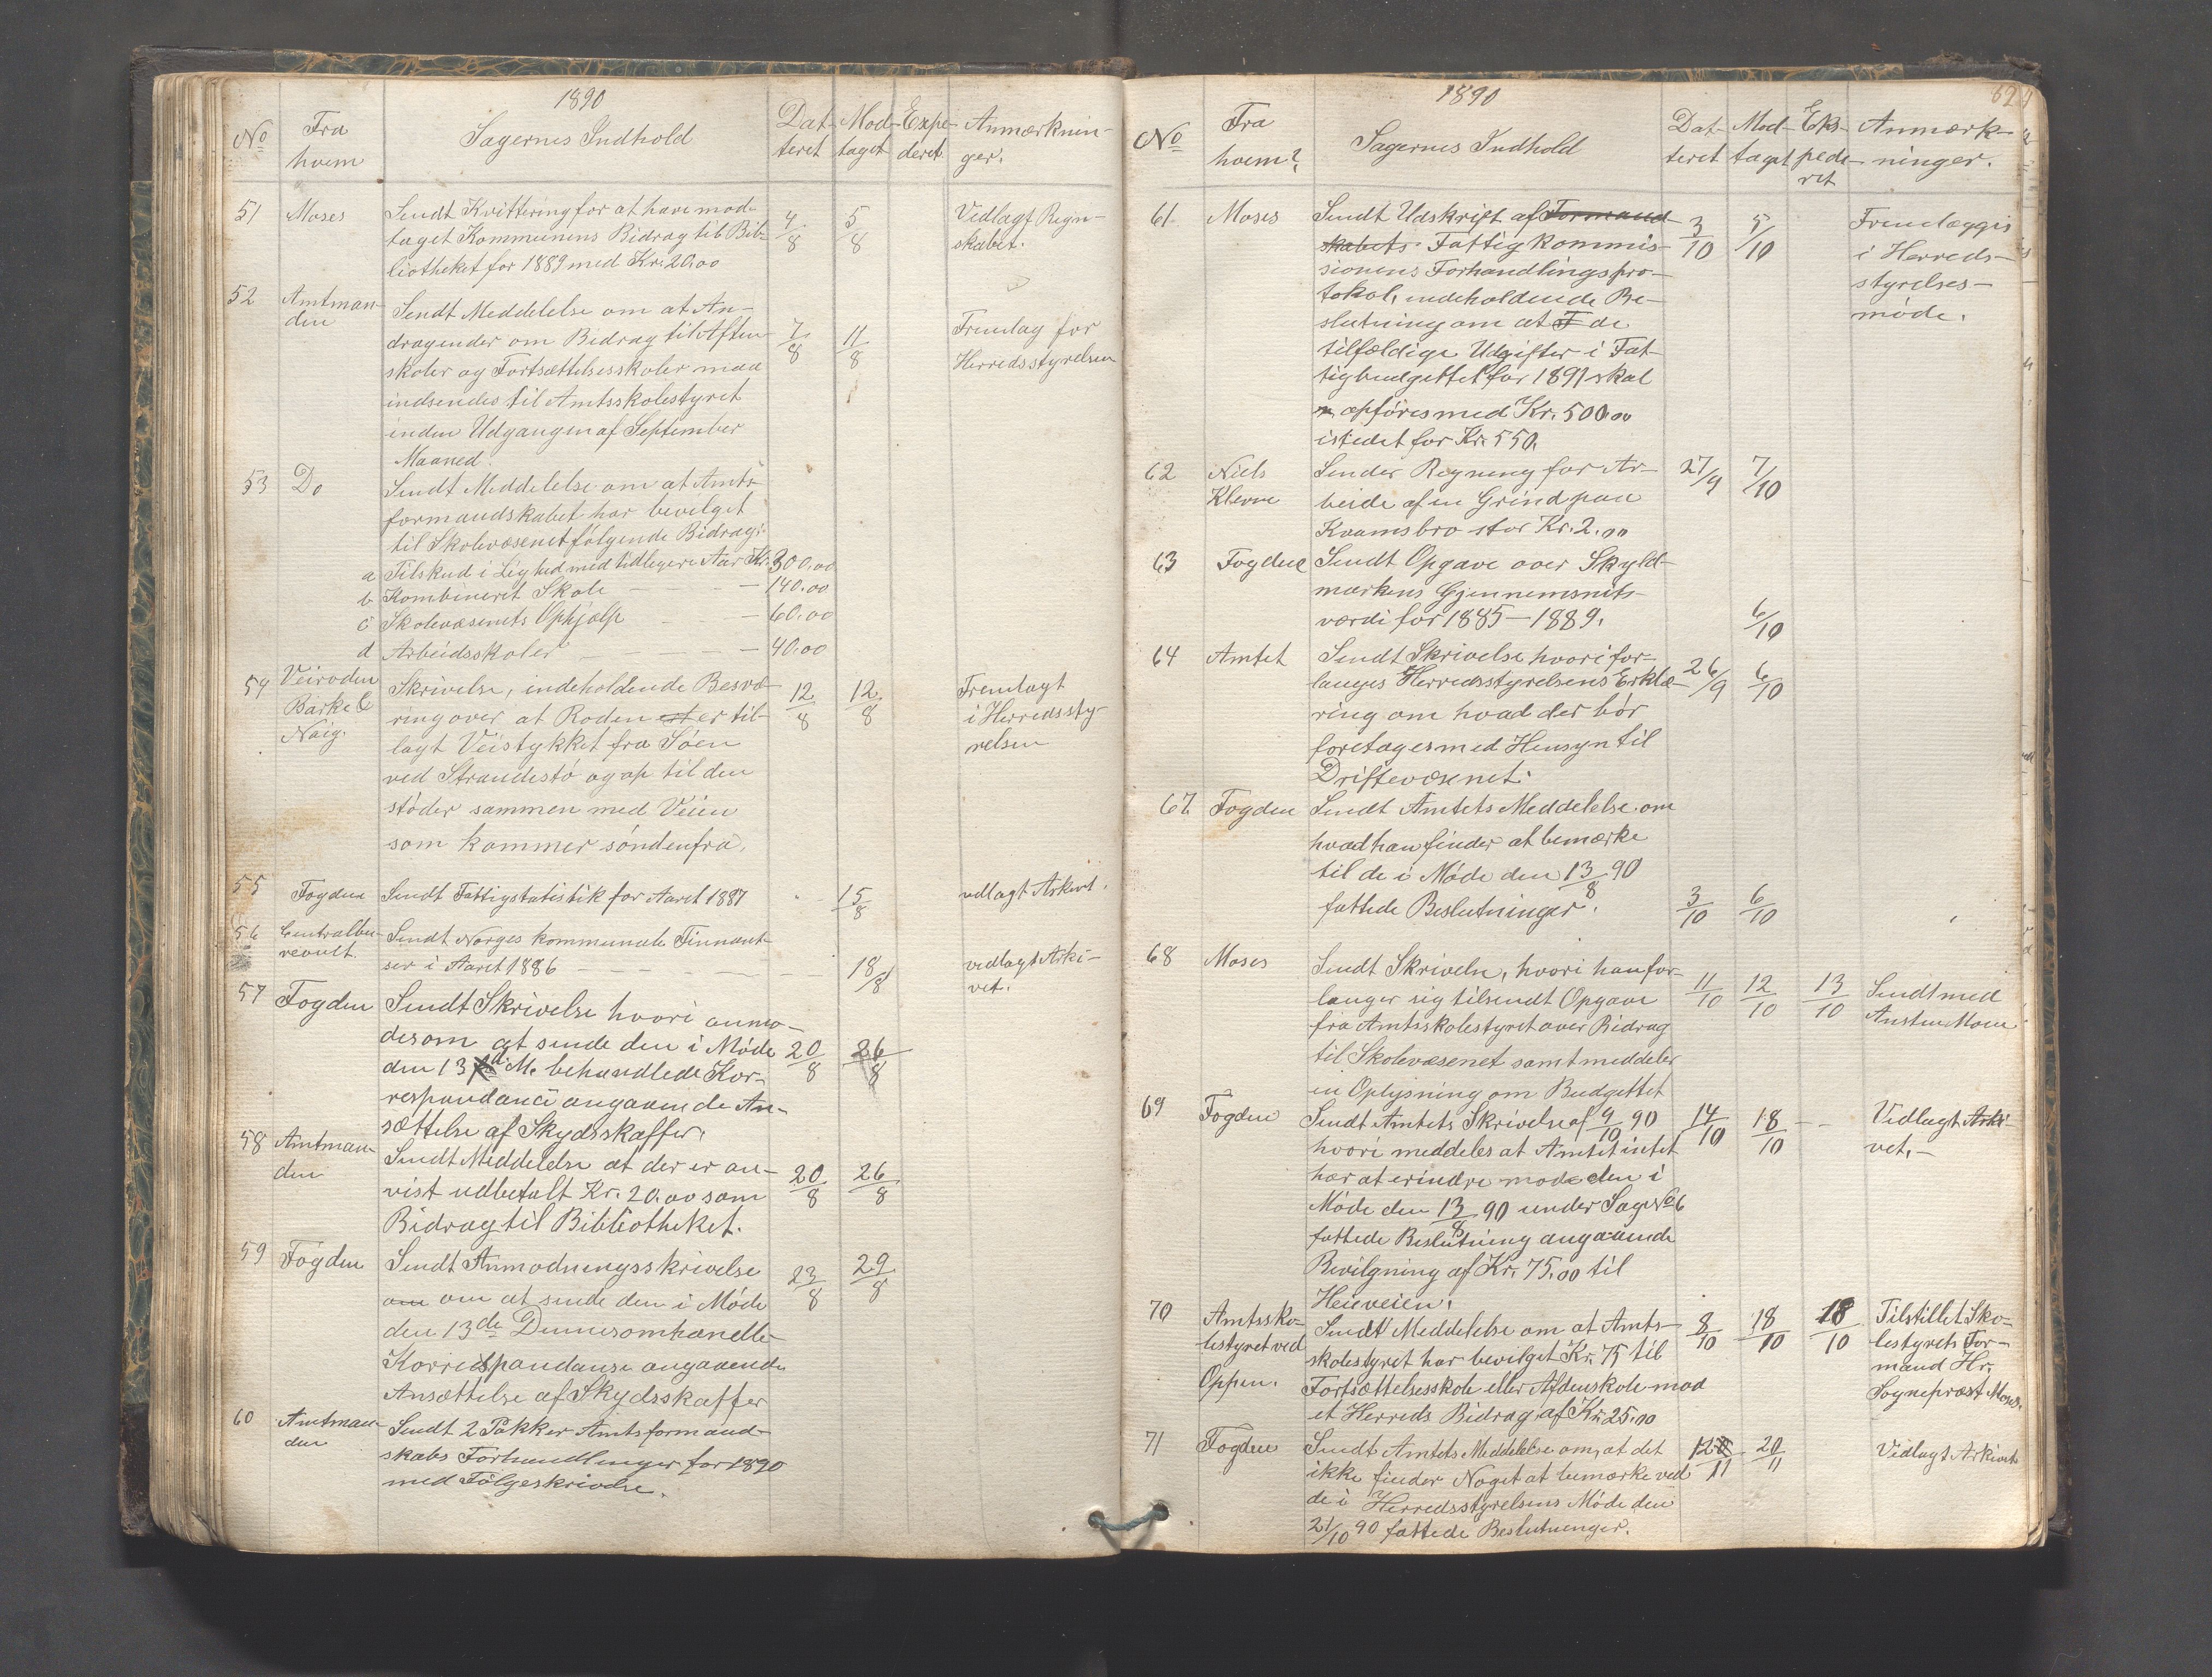 1890
No
Fra
hvem
Sagernes Indhold
Dat-
teret
Mod-
taget
Expe-
deret
Anmærknin-
ger.
51 Moses Sendt Kvittering for at have mod-
taget Kommunens Bidrag til Bib-
liotheket for 1889 med Kr. 20.00
4/8 5/8 Vedlagt Regn-
skabet.
52 Amtman-
den
Sendt Meddelelse om at An-
dragender om Bidrag til Aften-
skoler og Fortsættelsesskoler maa
indsendes til Amtsskolestyret
inden Udgangen af September
Maaned.
7/8 11/8 Fremlag for
Herredsstyrelsen
53 Do Sendt Meddelelse om at Amts-
formandskabet har bevilget
til Skolevæsenet følgende Bidrag:
a Tilskud i Lighed med tidligere Aar Kr. 300.00
b Kombineret Skole — — — 140.00
c Skolevæsenets Ophjælp — — — 60.00
d Arbeidsskoler — — — — 40.00
54 Veiroden
Barke &
Naig.
Skrivelse, indeholdende Besvæ-
ring over at Roden er til-
lagt Veistykket fra Søen
ved Strandestø og op til den
støder sammen med Veien
som kommer søndenfra.
12/8 12/8 Fremlagt
i Herredssty-
relsen
55 Fogden Sendt Fattigstatistik for Aaret 1887 15/8 vedlagt Arkivet.
56 Centralbu-
reault.
Sendt Norges kommunale Finnant-
ser i Aaret 1886 — — — — 18/8 vedlagt Arki-
vet.
57 Fogden Sendt Skrivelse hvori anmo-
des om at sende den i Møde
den 13 d. M. behandlede Kor-
respondance angaaende An-
sættelse af Skydsskaffer.
20/8 26/8
58 Amtman-
den
Sendt Meddelelse at der er an-
vist udbetalt Kr. 20.00 som
Bidrag til Bibliotheket.
20/8 26/8
59 Fogden Sendt Anmodningsskrivelse
om om at sende den i Møde
den 13de Dennes omhandlte
Korrespondanse angaaende
Ansættelse af Skydsskaffer
23/8 29/8
60 Amtman-
den
Sendt 2 Pakker Amtsformand-
skabs Forhandlinger for 1890
med Følgeskrivelse.
1890
No
Fra
hvem?
Sagernes Indhold
Dat-
teret
Mod-
taget
Eks-
pede-
ret
Anmærk-
ninger.
61 Moses Sendt Udskrift af Formand-
skabets Fattigkommis-
sionens Forhandlingspro-
tokol, indeholdende Be-
slutning om at de
tilfældige Udgifter i Fat-
tigbudgettet for 1891 skal
opføres med Kr. 500.00
istedet for Kr. 550.
3/10 5/10 Fremlægges
i Herreds-
styrelses-
møde.
62 Niels
Klevne
Sender Regning for Ar-
beide af en Grind paa
Kvamsbro stor Kr. 2.00
27/9 7/10
63 Fogden Sendt Opgave over Skyld-
markens Gjennemsnits-
værdi for 1885—1889.
6/10
64 Amtet Sendt Skrivelse hvori for-
langes Herredsstyrelsens Erklæ-
ring om hvad der bør
foretages med Hensyn til
Driftevæsenet.
26/9 6/10
67 Fogden Sendt Amtets Meddelelse om
hvad han finder at bemærke
til de i Møde den 13/8 90
fattede Beslutninger.
3/10 6/10
68 Moses Sendt Skrivelse, hvori han for-
langer sig tilsendt Opgave
fra Amtsskolestyret over Bidrag
til Skolevæsenet samt meddeler
en Oplysning om Budgettet
11/10 12/10 13/10 Sendt med
Austen Moen
69 Fogden Sendt Amtets Skrivelse af 9/10 90
hvori meddeles at Amtet intet
har at erindre mod den i
Møde den 13/8 90 under Sag No 6
fattede Beslutning angaaende
Bevilgning af Kr. 75.00 til
Heieveien.
14/10 18/10 — — Vedlagt Arki-
vet. —
70 Amtssko-
lestyret ved
Oppen.
Sendt Meddelelse om at Amts-
skolestyret har bevilget Kr. 75 til
Fortsættelsesskole eller Aftenskole mod
et Herreds Bidrag af Kr. 25.00
8/10 18/10 18/10 Tilstillet Sko-
lestyrets For-
mand Hr.
Sognepræst Moses.
71 Fogden Sendt Amtets Meddelelse om, at det
ikke finder Noget at bemærke ved
de i Herredsstyrelsens Møde den
21/10 90 fattede Beslutninger.
12/11 20/11 Vedlagt Arkivet